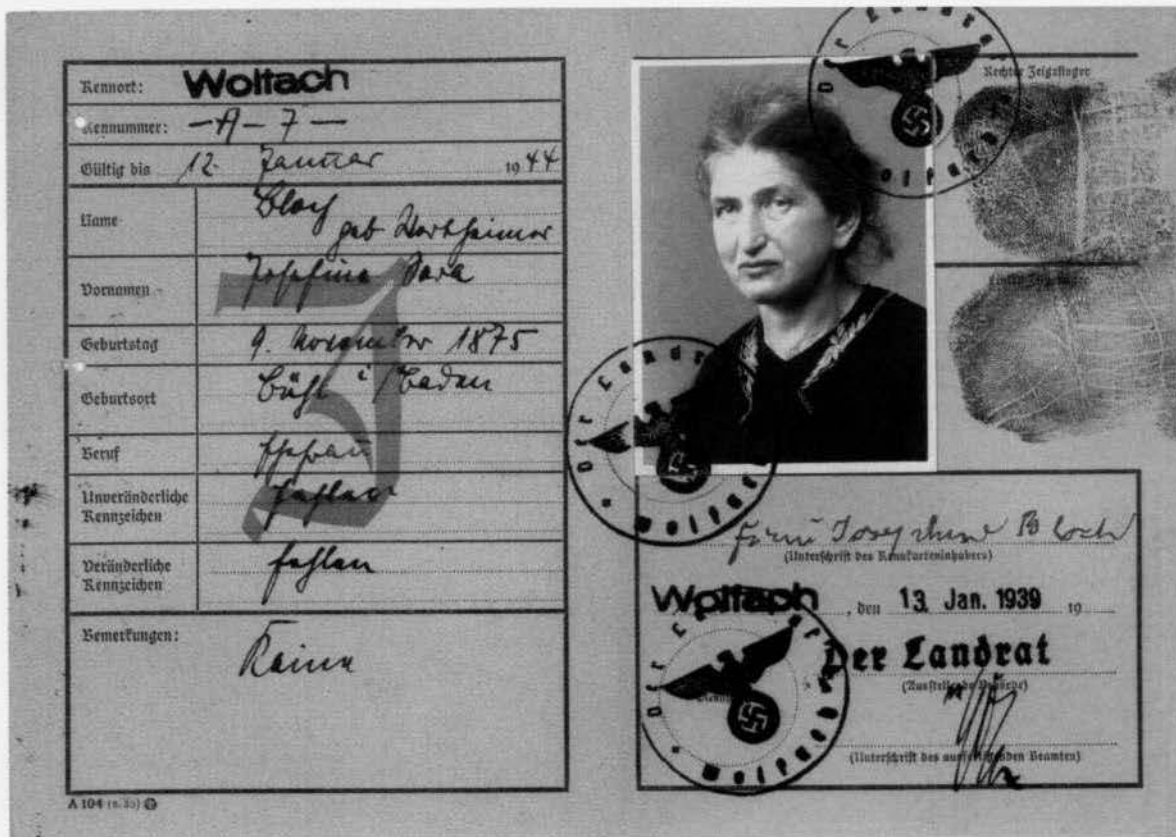 Kennort: Wolfach
Kennummer: —A—7—
Gültig bis 12. Januar 1944
Name Bloch
geb Wertheimer
Vornamen Josefina Sara
Geburtstag 9. November 1875
Geburtsort Bühl i/Baden
Beruf Ehefrau
Unveränderliche
Kennzeichen fehlen
Veränderliche
Kennzeichen fehlen
Bemerkungen:
Keine
A 104
J
Der Landrat
Wolfach
Rechter Zeigefinger
Der Landrat
Wolfach
Josephine Bloch
(Unterschrift des Kennkarteninhabers)
Wolfach, den 13. Jan. 1939 19
Der Landrat
(Ausstellende Behörde)
(Unterschrift des ausfertigenden Beamten)
Der Landrat
Wolfach